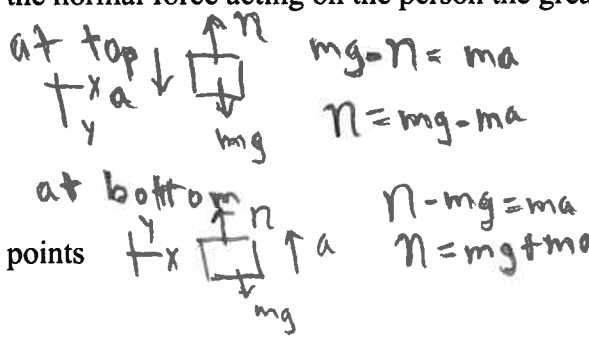 the normal force acting on the person the grea
at top
x
a
y
n
mg
mg - n = ma
n = mg - ma
at bottom
points
y
x
n
a
mg
n - mg = ma
n = mg + ma